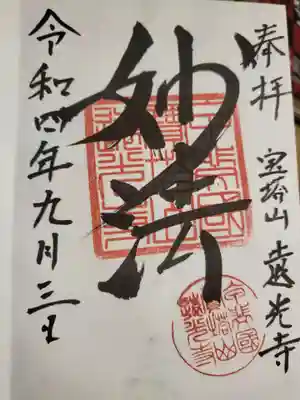 奉拝
宝塔山 遠光寺
妙法
令和四年九月三日